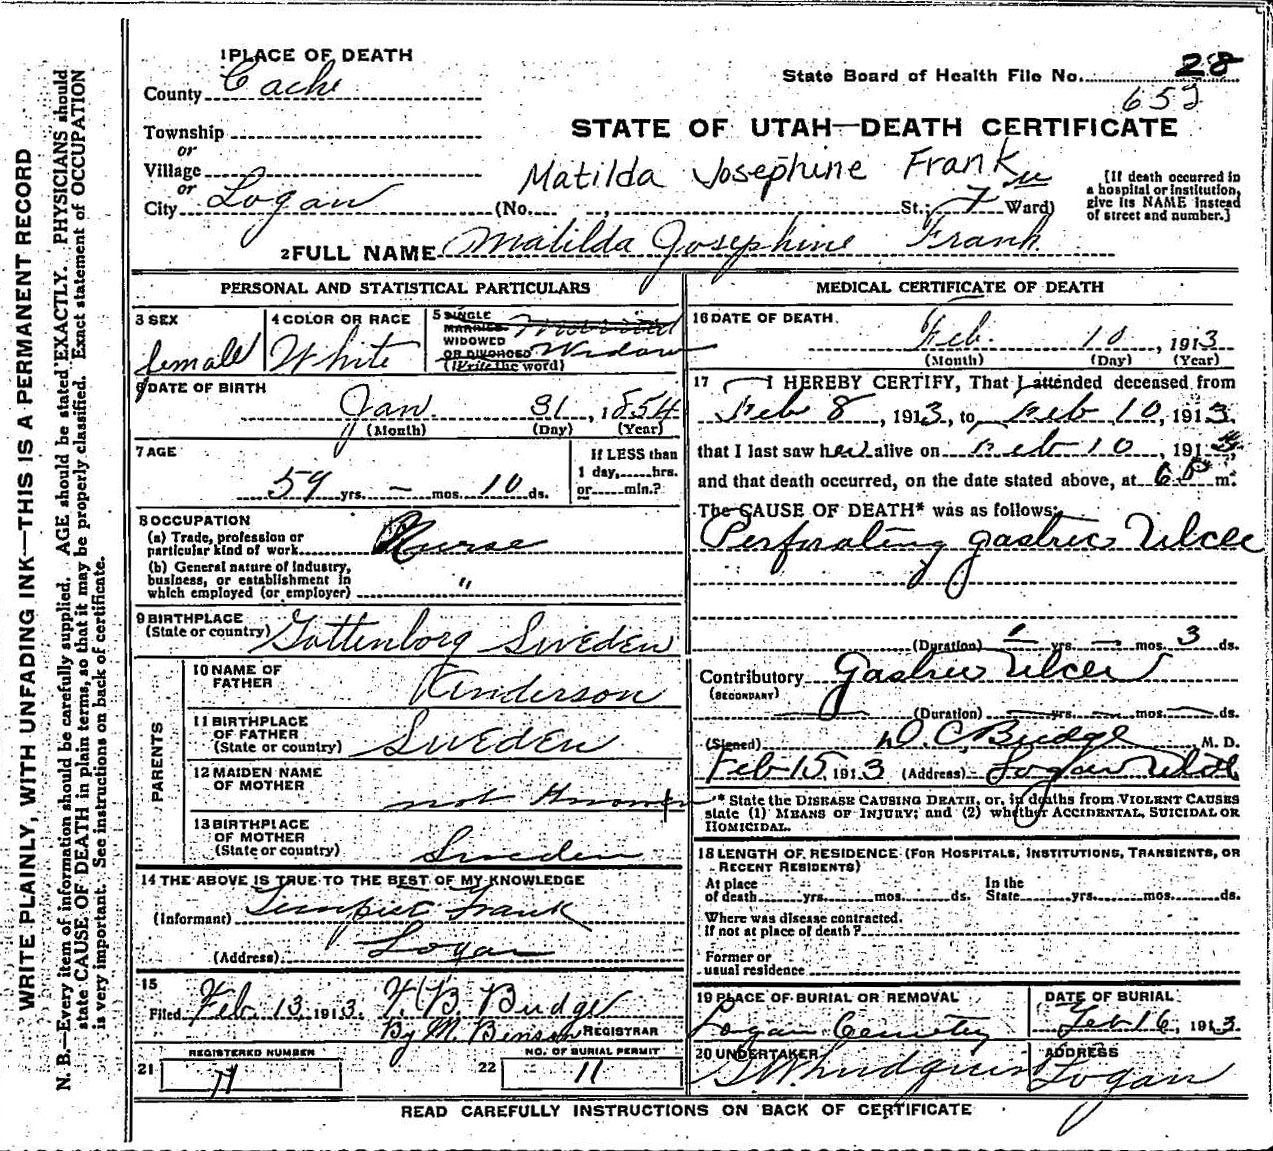 WRITE PLAINLY, WITH UNFADING INK—THIS IS A PERMANENT RECORD
N. B.—Every item of information should be carefully supplied. AGE should be stated EXACTLY. PHYSICIANS should
state CAUSE OF DEATH in plain terms, so that it may be properly classified. Exact statement of OCCUPATION
is very important. See instructions on back of certificate.
1 PLACE OF DEATH
County Cache
Township
or
Village
or
City Logan
State Board of Health File No. 28
652
STATE OF UTAH—DEATH CERTIFICATE
Matilda Josephine Frank
(No. , St.; 7 Ward)
[If death occurred in
a hospital or institution,
give its NAME instead
of street and number.]
2 FULL NAME Matilda Josephine Frank
PERSONAL AND STATISTICAL PARTICULARS
3 SEX
female
4 COLOR OR RACE
White
5 SINGLE
MARRIED
WIDOWED
OR DIVORCED
(Write the word)
Married
Widow
6 DATE OF BIRTH
Jan. 31, 1854
(Month) (Day) (Year)
7 AGE
59 yrs. – mos. 10 ds.
If LESS than
1 day, hrs.
or min.?
8 OCCUPATION
(a) Trade, profession or
particular kind of work Nurse
(b) General nature of industry,
business, or establishment in
which employed (or employer) "
9 BIRTHPLACE
(State or country) Gottenborg Sweden
PARENTS
10 NAME OF
FATHER
Anderson
11 BIRTHPLACE
OF FATHER
(State or country) Sweden
12 MAIDEN NAME
OF MOTHER
not known
13 BIRTHPLACE
OF MOTHER
(State or country) Sweden
14 THE ABOVE IS TRUE TO THE BEST OF MY KNOWLEDGE
(Informant) Frank
(Address) Logan
15
Filed Feb. 13, 1913. B. Budge
By M. Benson REGISTRAR
REGISTERED NUMBER
21 11
NO. OF BURIAL PERMIT
22 11
MEDICAL CERTIFICATE OF DEATH
16 DATE OF DEATH
Feb. 10, 1913
(Month) (Day) (Year)
17 I HEREBY CERTIFY, That I attended deceased from
Feb 8, 1913, to Feb 10, 1913,
that I last saw her alive on Feb 10, 1913,
and that death occurred, on the date stated above, at 6 P m.
The CAUSE OF DEATH* was as follows:
Perforating gastric Ulcer
(Duration) – yrs. – mos. 3 ds.
Contributory Gastric Ulcer
(SECONDARY)
(Duration) – yrs. – mos. – ds.
(Signed) D. C. Budge M. D.
Feb 15, 1913 (Address) Logan Utah
* State the DISEASE CAUSING DEATH, or, in deaths from VIOLENT CAUSES
state (1) MEANS OF INJURY; and (2) whether ACCIDENTAL, SUICIDAL OR
HOMICIDAL.
18 LENGTH OF RESIDENCE (FOR HOSPITALS, INSTITUTIONS, TRANSIENTS, OR
RECENT RESIDENTS)
At place
of death yrs. mos. ds.
In the
State yrs. mos. ds.
Where was disease contracted.
if not at place of death?
Former or
usual residence
19 PLACE OF BURIAL OR REMOVAL
Logan Cemetery
DATE OF BURIAL
Feb 16, 1913.
20 UNDERTAKER
ADDRESS
Logan
READ CAREFULLY INSTRUCTIONS ON BACK OF CERTIFICATE